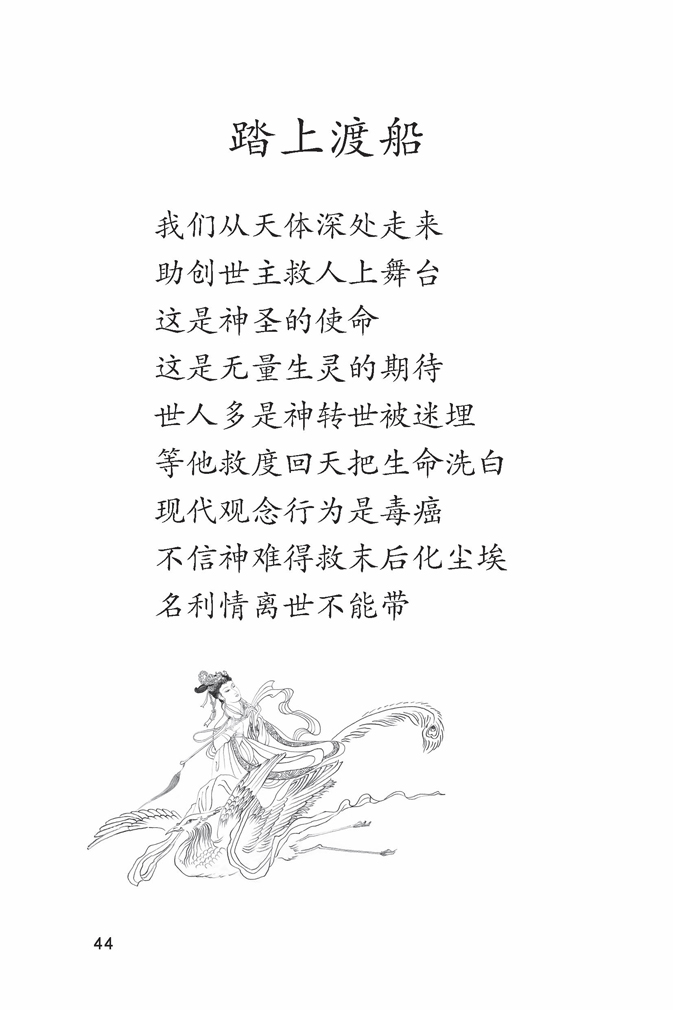 踏上渡船
我们从天体深处走来
助创世主救人上舞台
这是神圣的使命
这是无量生灵的期待
世人多是神转世被迷埋
等他救度回天把生命洗白
现代观念行为是毒癌
不信神难得救末后化尘埃
名利情离世不能带
44